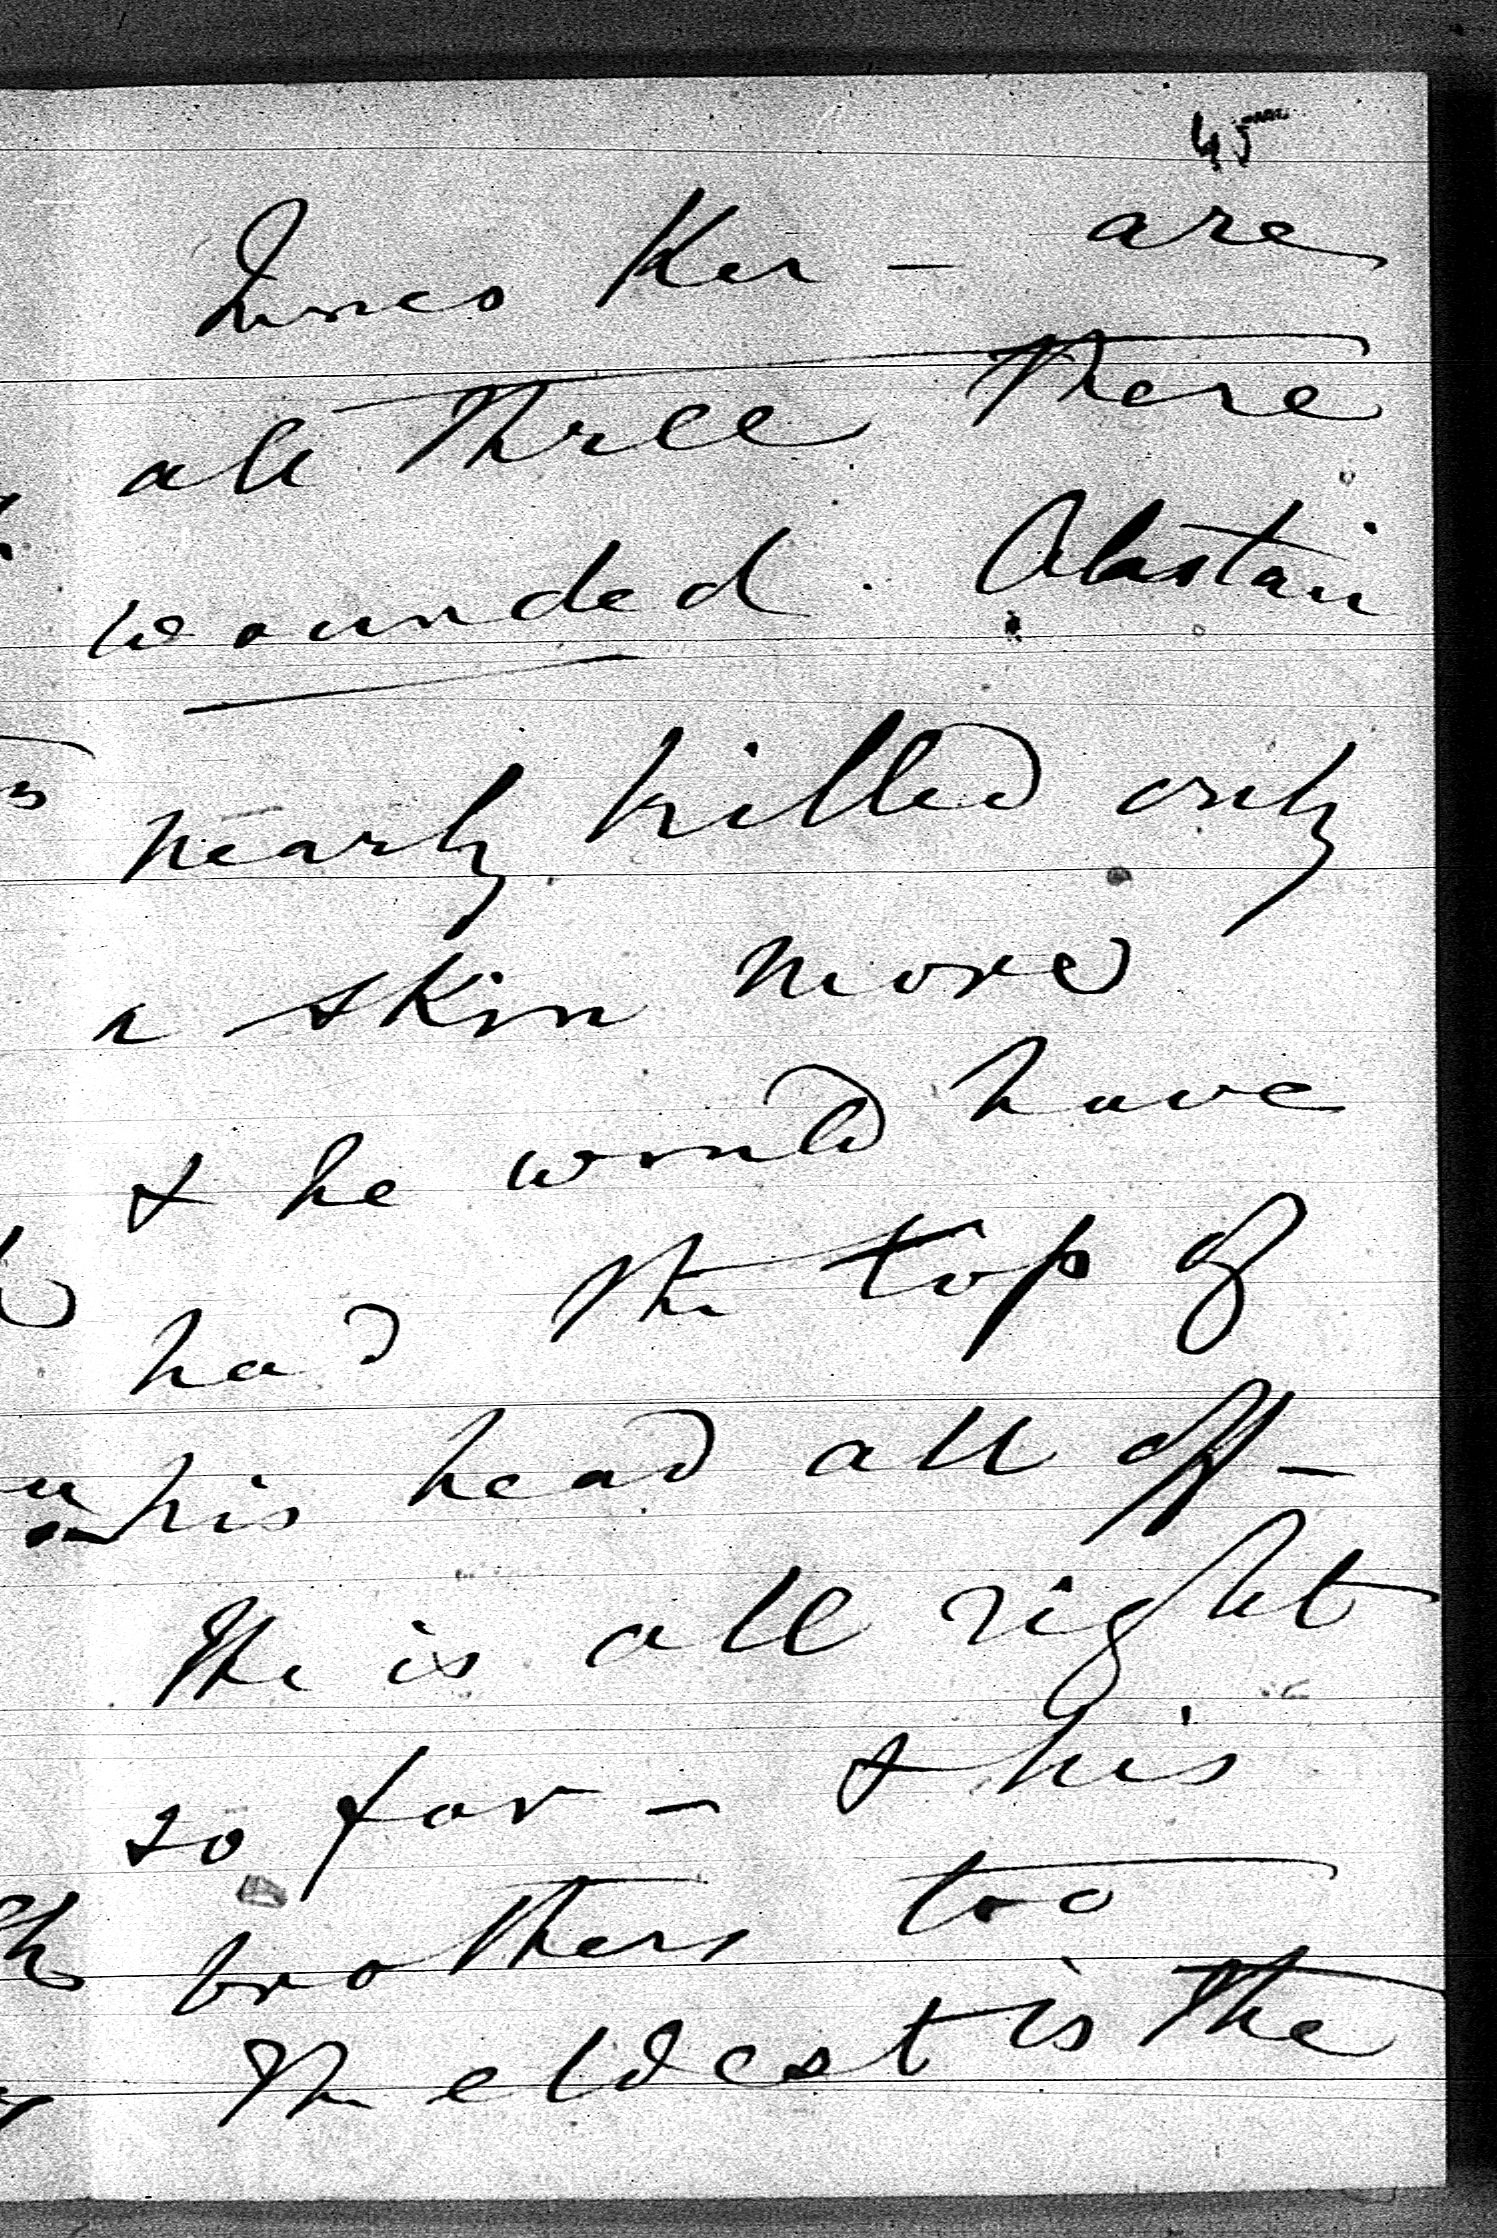 45
Innes Ker - are
all three there
wounded. Alastair
nearly killed only
a skin more
& he would have
had the top of
his head all off -
He is all right
so far - & his
brothers too
The eldest is the